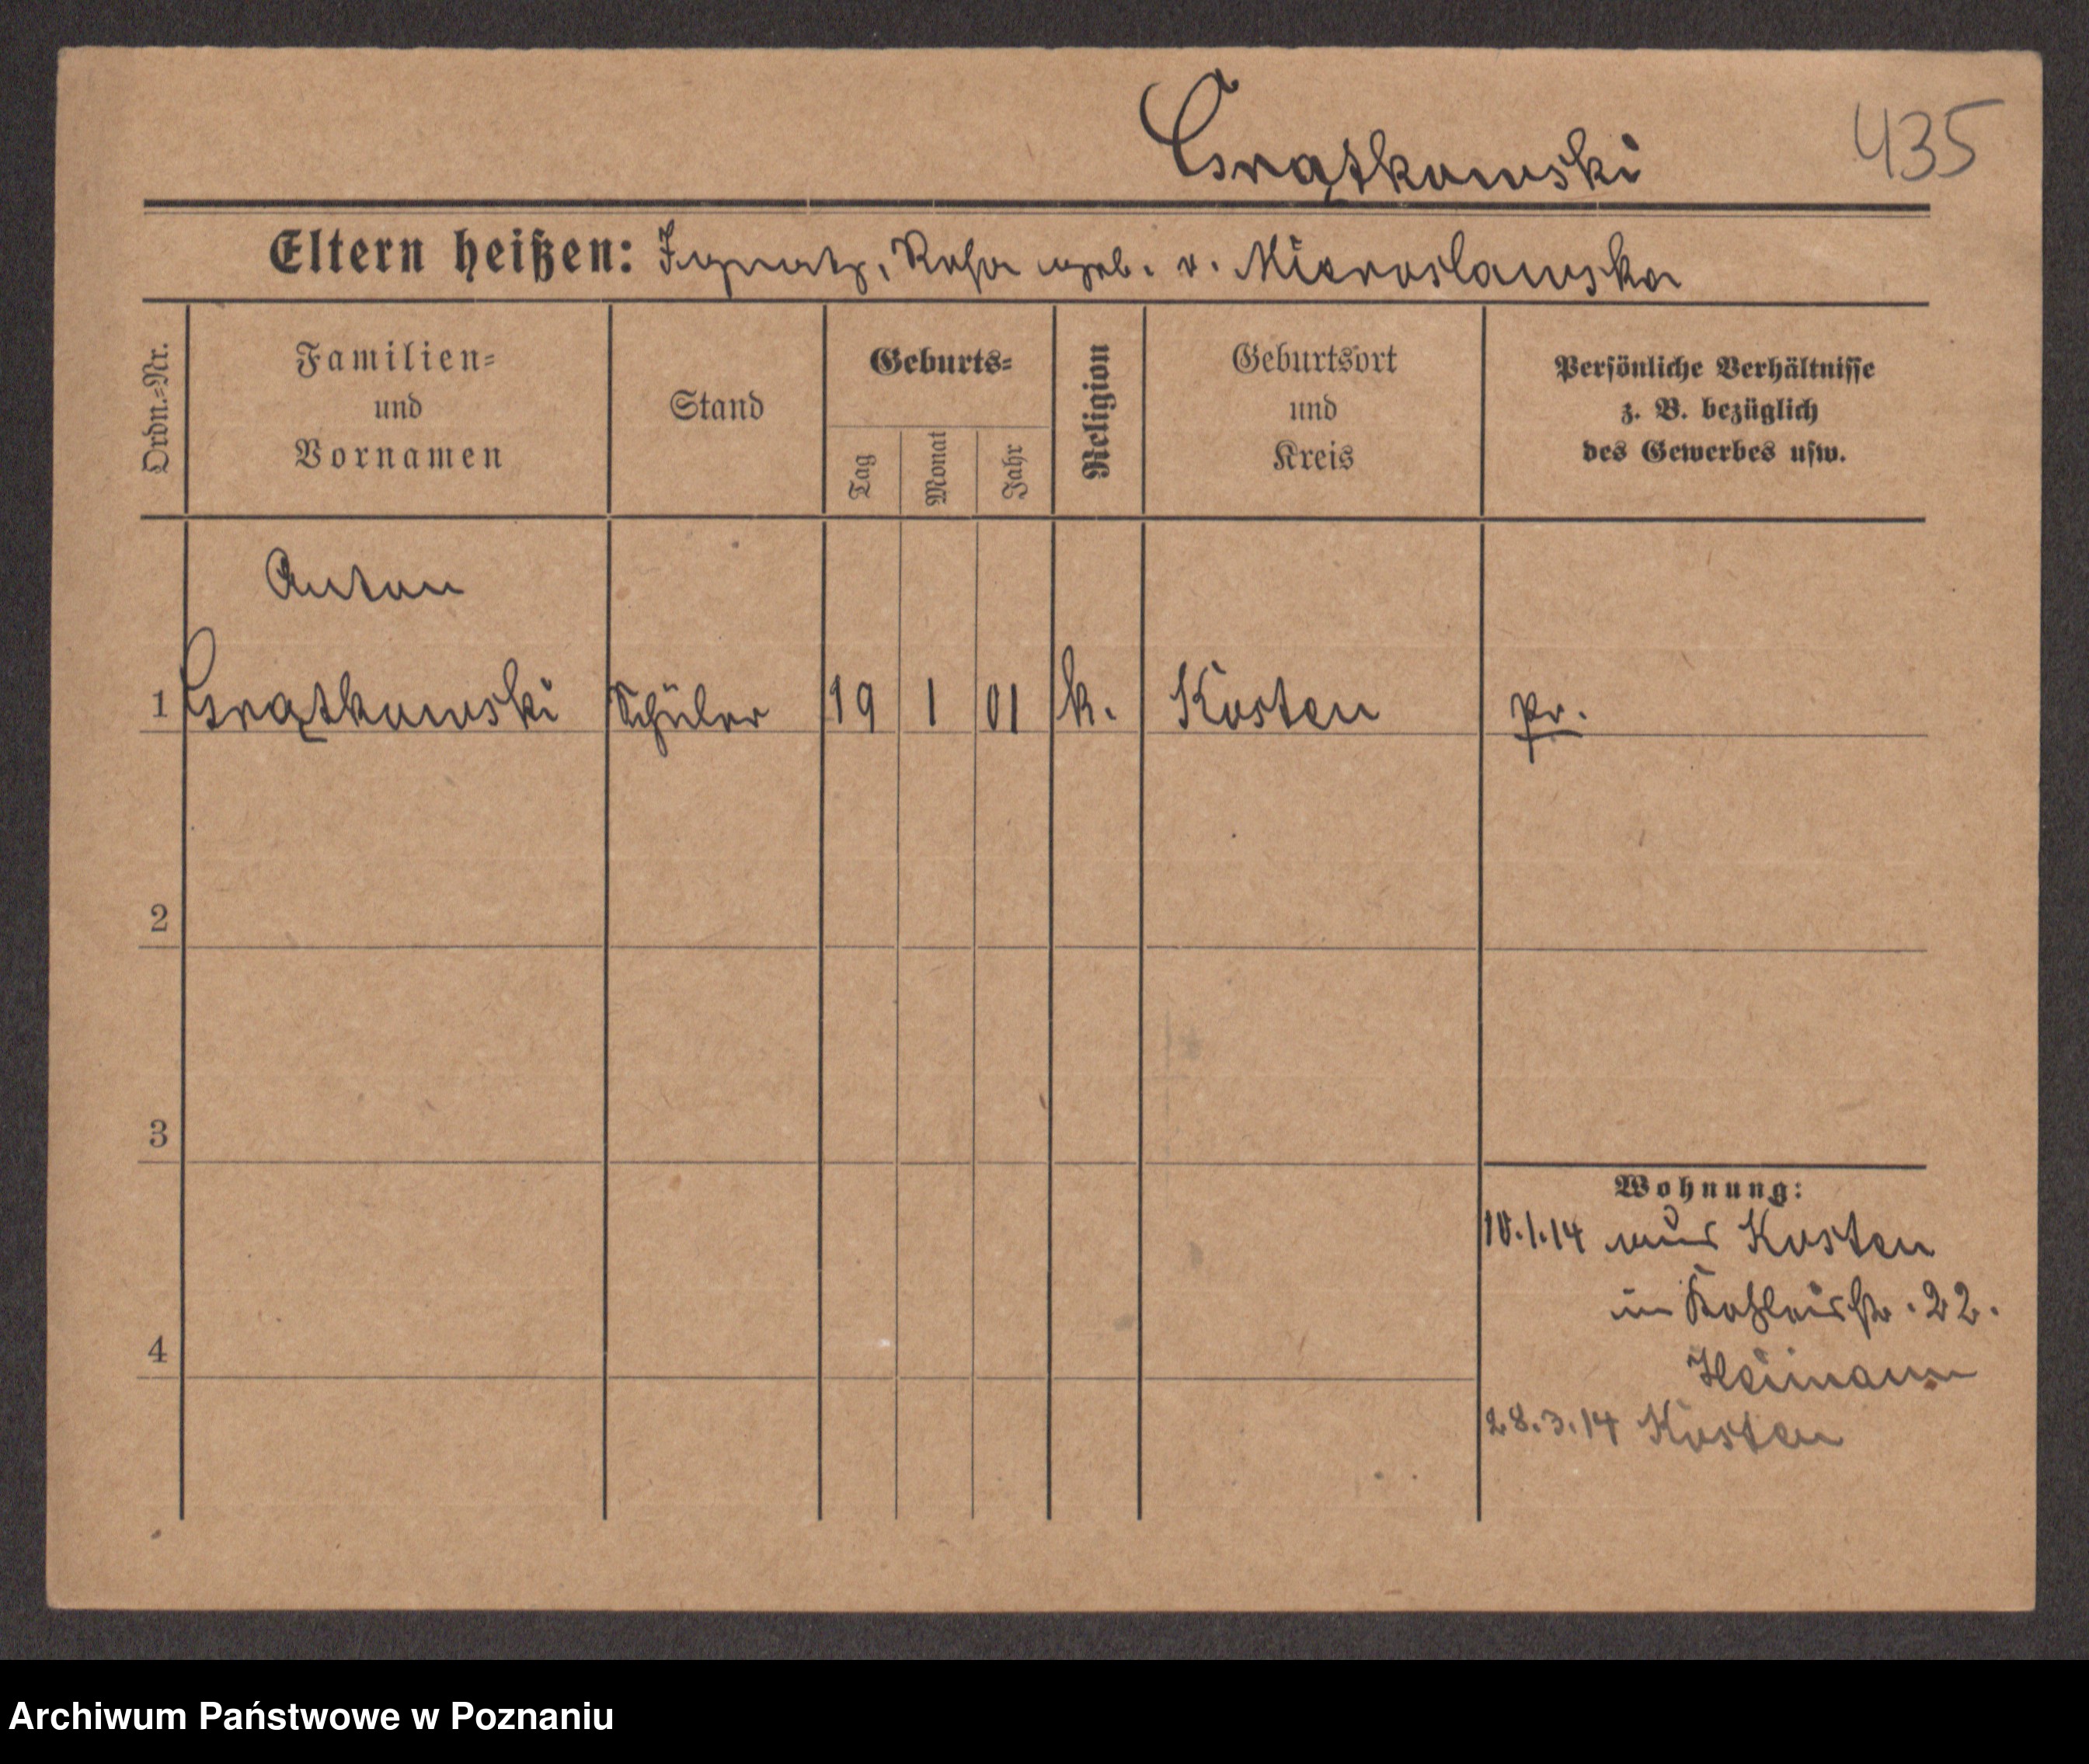 Grątkowski 435
Eltern heißen: Ignatz, Rosa geb. v. Mieroslawska
Ordn.=Nr.
Familien=
und
Vornamen
Stand
Geburts=
Tag
Monat
Jahr
Religion
Geburtsort
und
Kreis
Persönliche Verhältnisse
z. B. bezüglich
des Gewerbes usw.
Anton
1 Grątkowski Schüler 19 1 01 k. Kosten pr.
2
3
Wohnung:
10.1.14 aus Kosten
in 22.
4
Heimann
28.3.14 Kosten
Archiwum Państwowe w Poznaniu